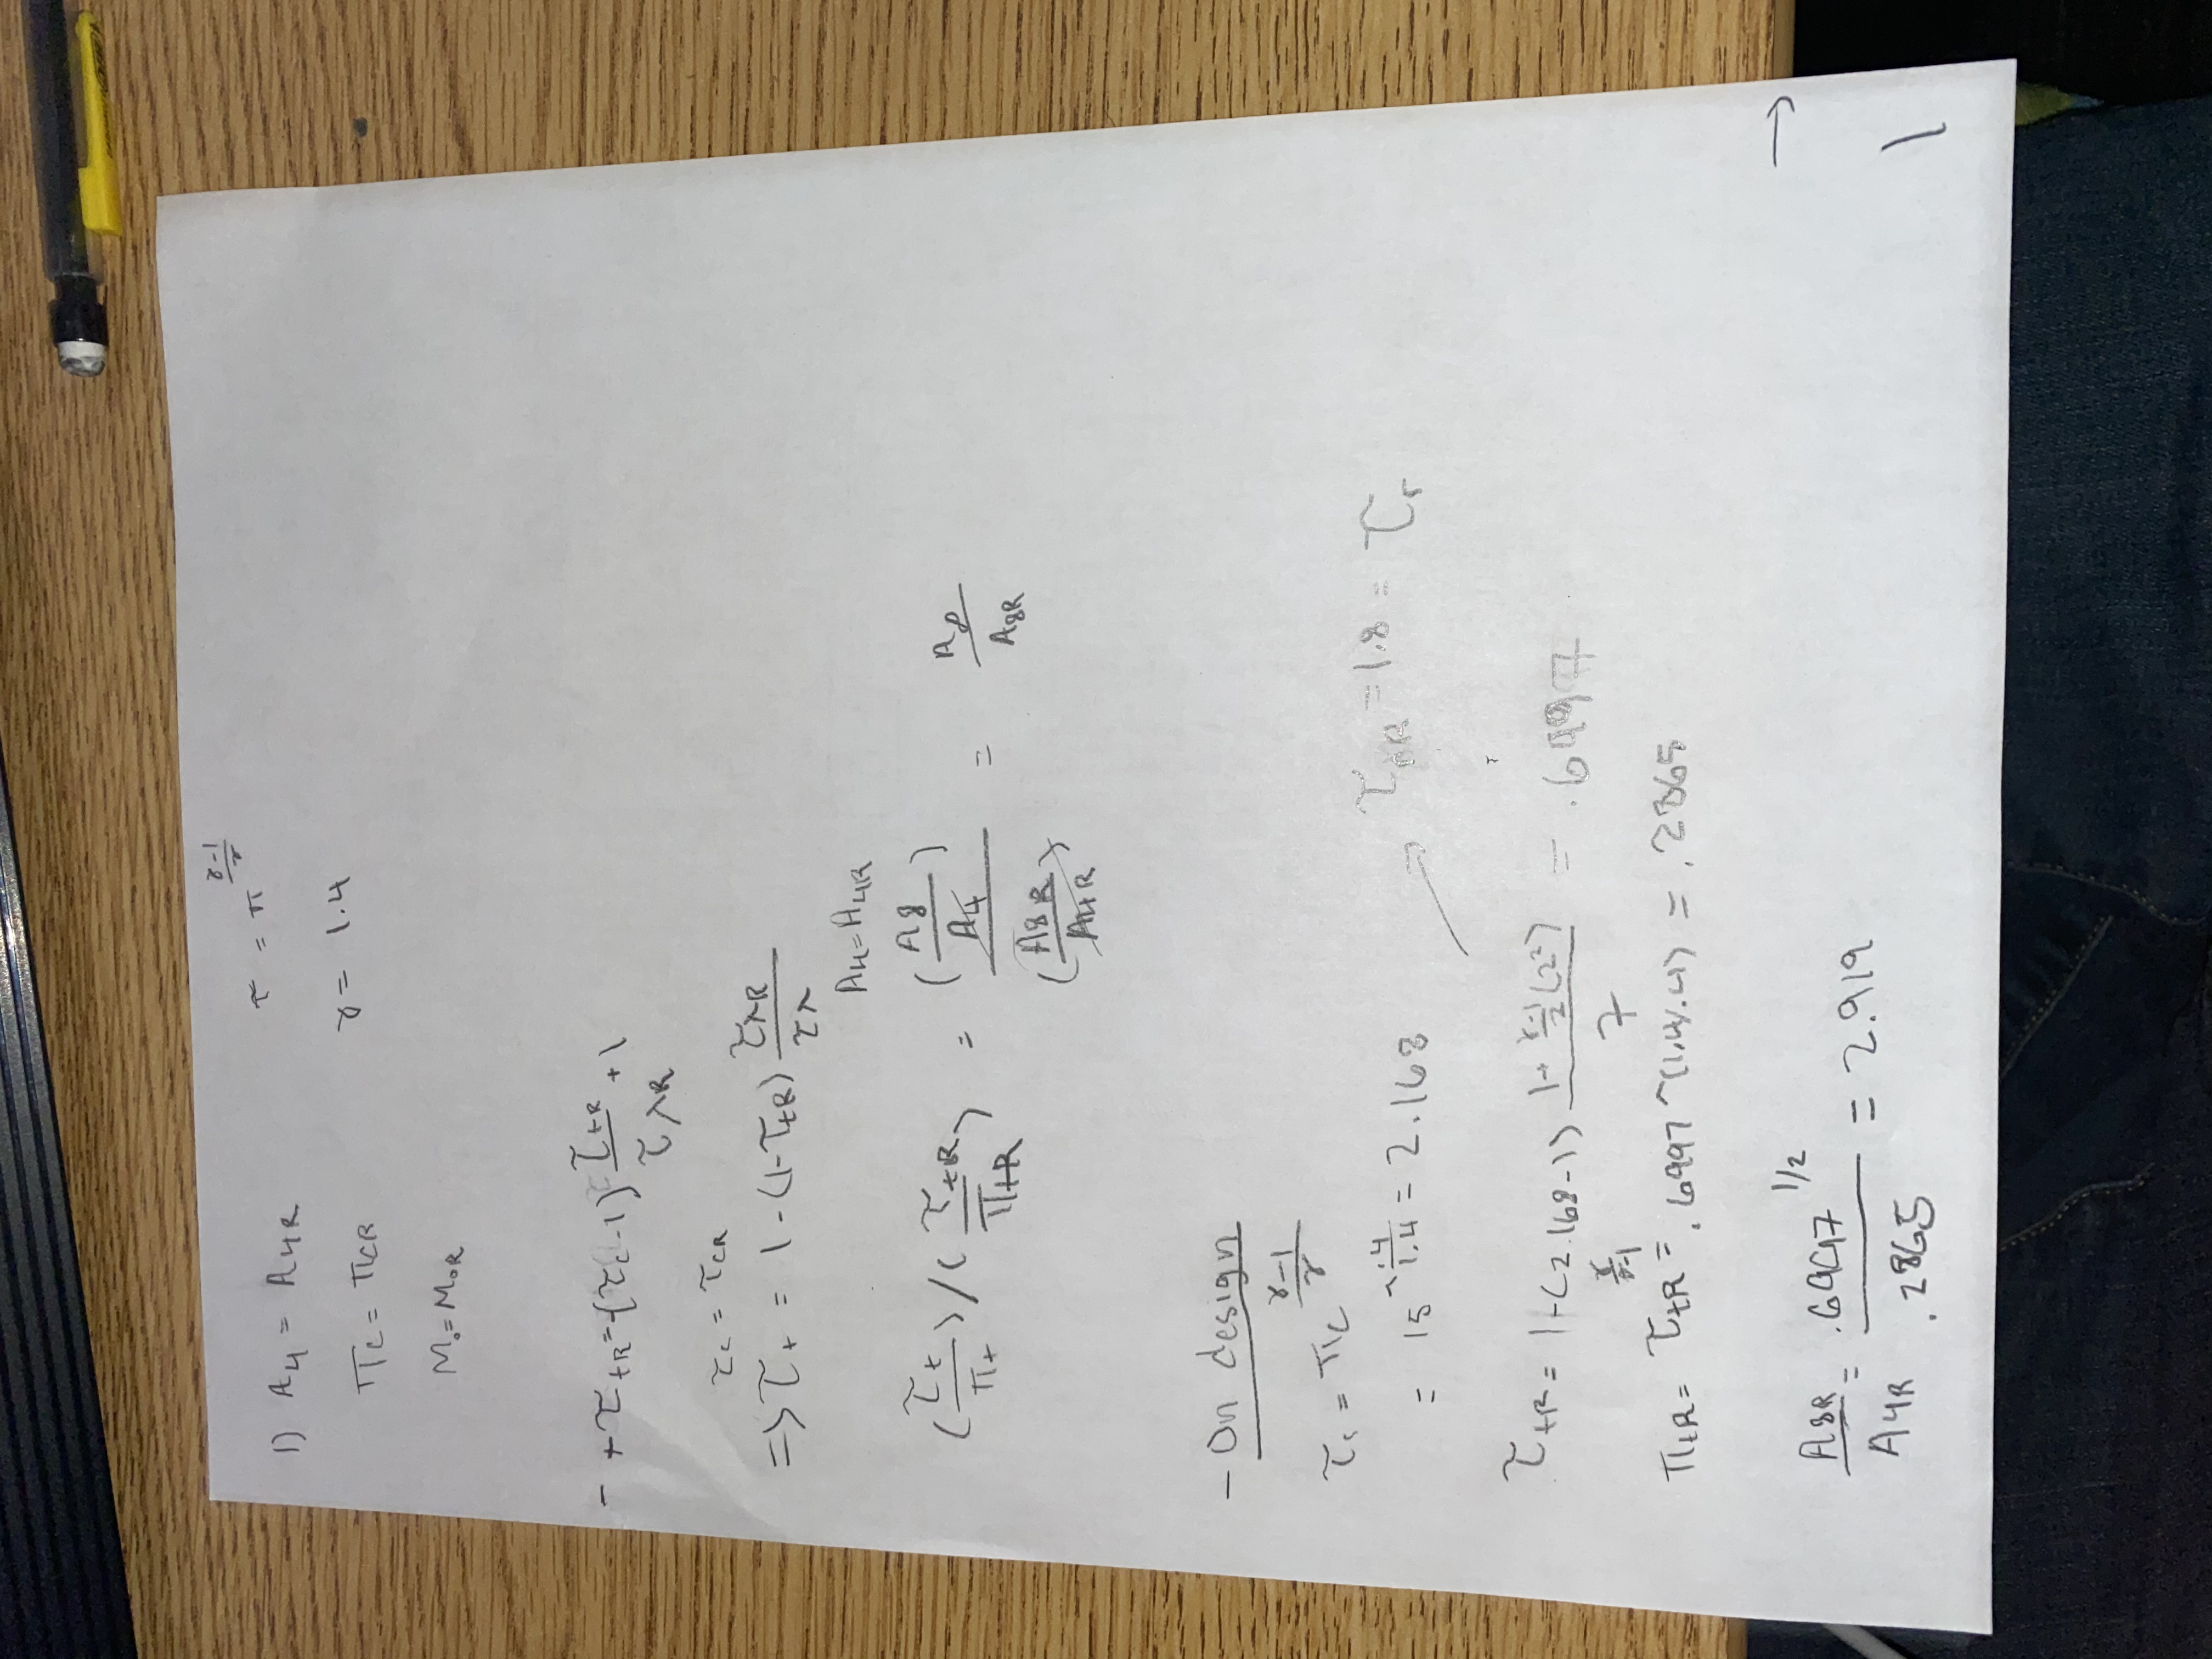 1) A4 = A4R    τ = π^((γ-1)/γ)
πc = πcR    γ = 1.4
M₀ = M₀R
- + τtR = -(τc-1) τrR/τλR + 1
τc = τcR
=> τt = 1 - (1-τtR) τλR/τλ
A4 = A4R
(τt/πt) / (τtR/πtR) = (A8/A4)/(A8R/A4R) = A8/A8R
- On design
τc = πc^((γ-1)/γ)
= 15^(.4/1.4) = 2.168    τrR = 1.8 = τr
τtR = 1-(2.168-1) (1+ (γ-1)/2 (2²))/7 = .6997
πtR = τtR^(γ/(γ-1)) = .6997^(1.4/.4) = .2865
A8R/A4R = .6997^(1/2)/.2865 = 2.919
→
1